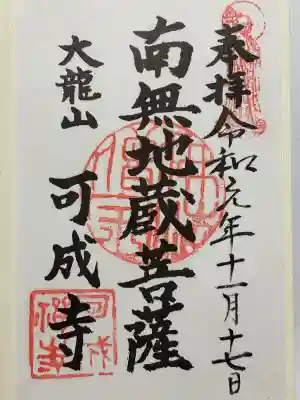 奉拝令和元年十一月十七日
南無地蔵菩薩
大龍山
可成寺